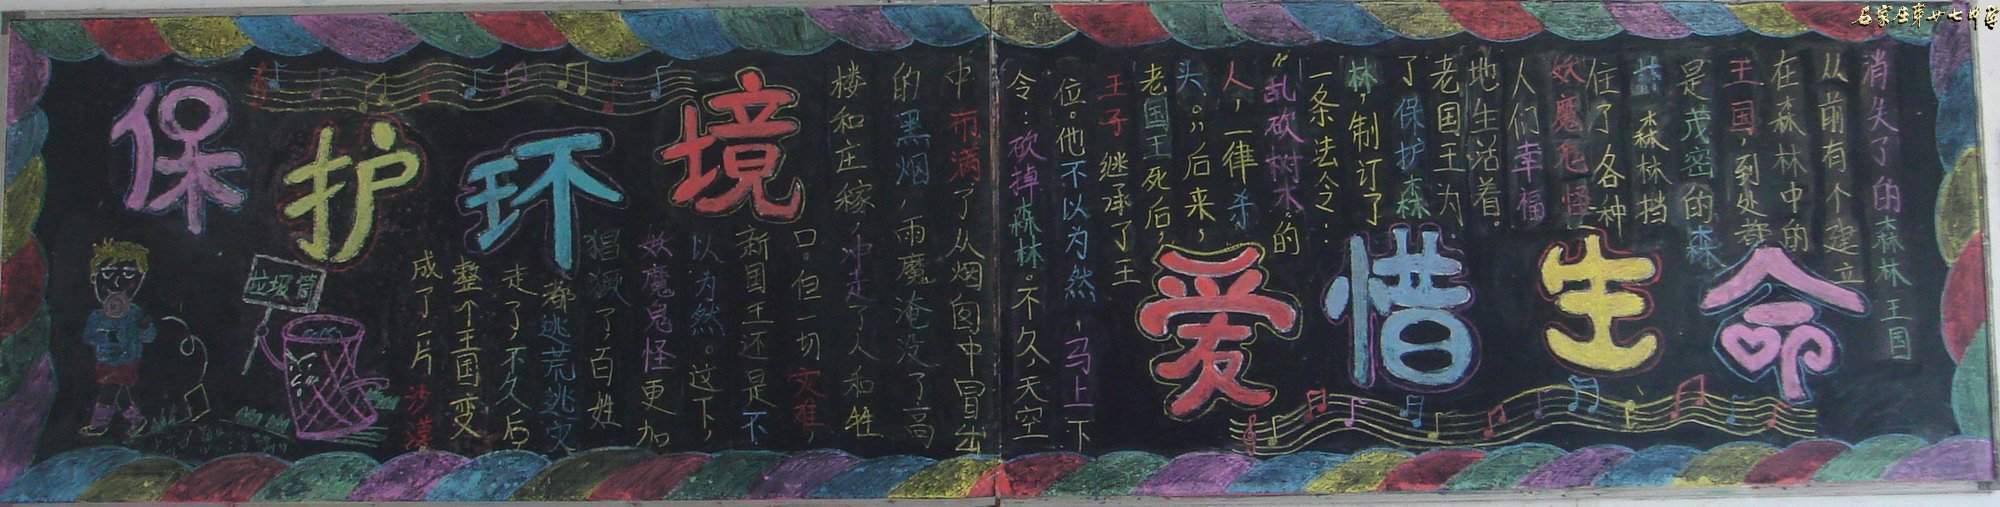 石家庄第廿七中学
保护环境
爱惜生命
消失了的森林王国
从前有个建立
在森林中的
王国,到处都
是茂密的森
林.森林挡
住了各种
妖魔鬼怪.
人们幸福
地生活着。
老国王为
了保护森
林,制订了
一条法令:
“乱砍树木的
人,一律杀
头。”后来,
老国王死后,
王子继承了王
位。他不以为然,马上下
令:砍掉森林。不久,天空
中布满了从烟囱中冒出
的黑烟,雨魔淹没了高
楼和庄稼,冲走了人和牲
口。但一切灾难,
新国王还是不
以为然。这下,
妖魔鬼怪更加
猖獗了百姓
都逃荒逃灾
走了不久后
整个王国变
成了一片沙漠
垃圾筒